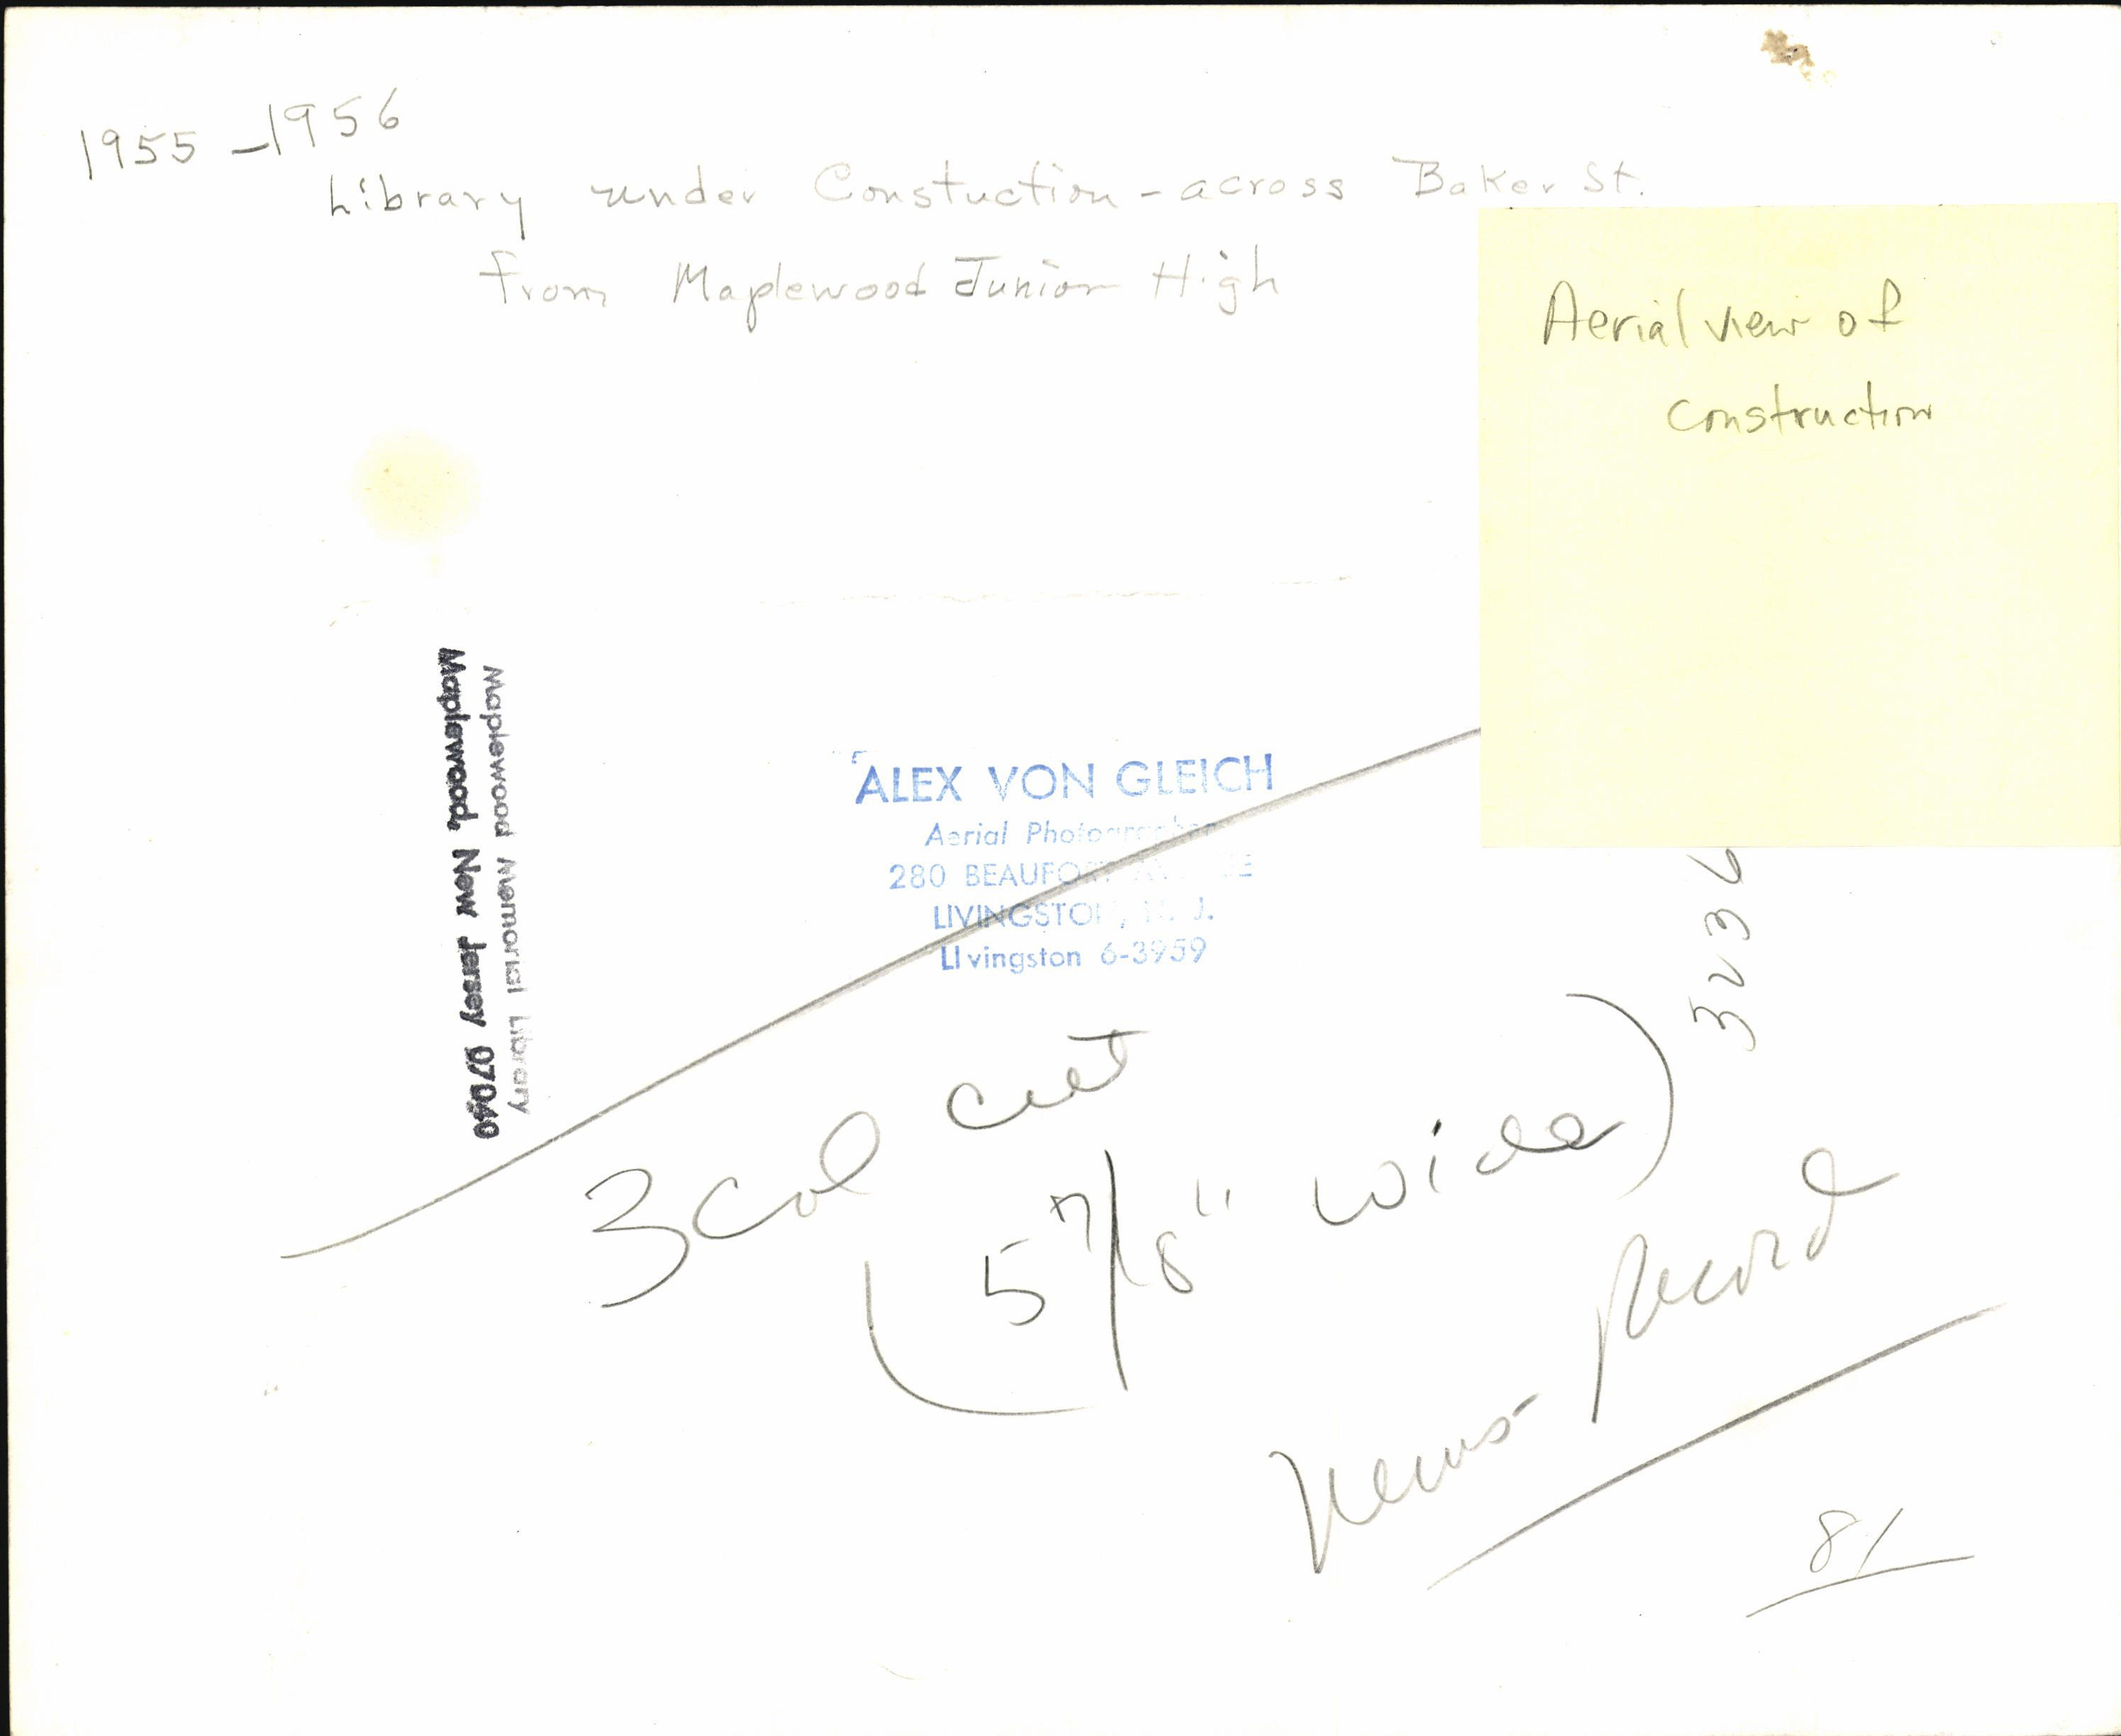 1955-1956
Library under Constuction - across Baker St.
from Maplewood Junior High
Aerial view of
construction
Maplewood Memorial Library
Maplewood, New Jersey 07040
ALEX VON GLEICH
Aerial Photographer
280 BEAUFORT AVENUE
LIVINGSTON, N. J.
LIvingston 6-3959
3 col cut
(5 7/8" wide)
News-Record
81